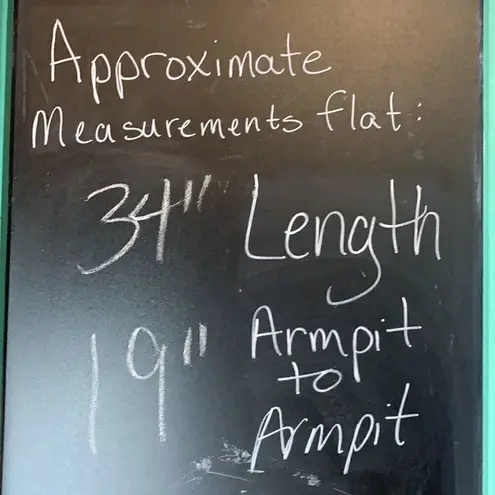 Approximate
Measurements flat:
34" Length
19" Armpit
to
Armpit